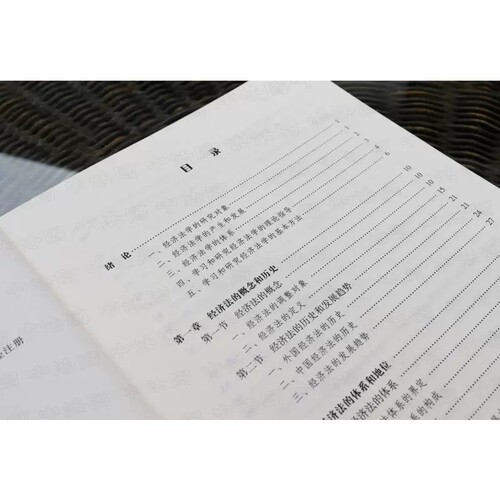 目 录
绪 论
一、经济法学的研究对象
二、经济法学的产生和发展
三、经济法学的体系
四、学习和研究经济法学的理论指导
五、学习和研究经济法学的基本方法
第一章 经济法的概念和历史
第一节 经济法的概念
一、经济法的调整对象
二、经济法的定义
第二节 经济法的历史和发展趋势
一、外国经济法的历史
二、中国经济法的历史
三、经济法的发展趋势
经济法的体系和地位
经济法的体系
法体系的界定
体系的构成
注册